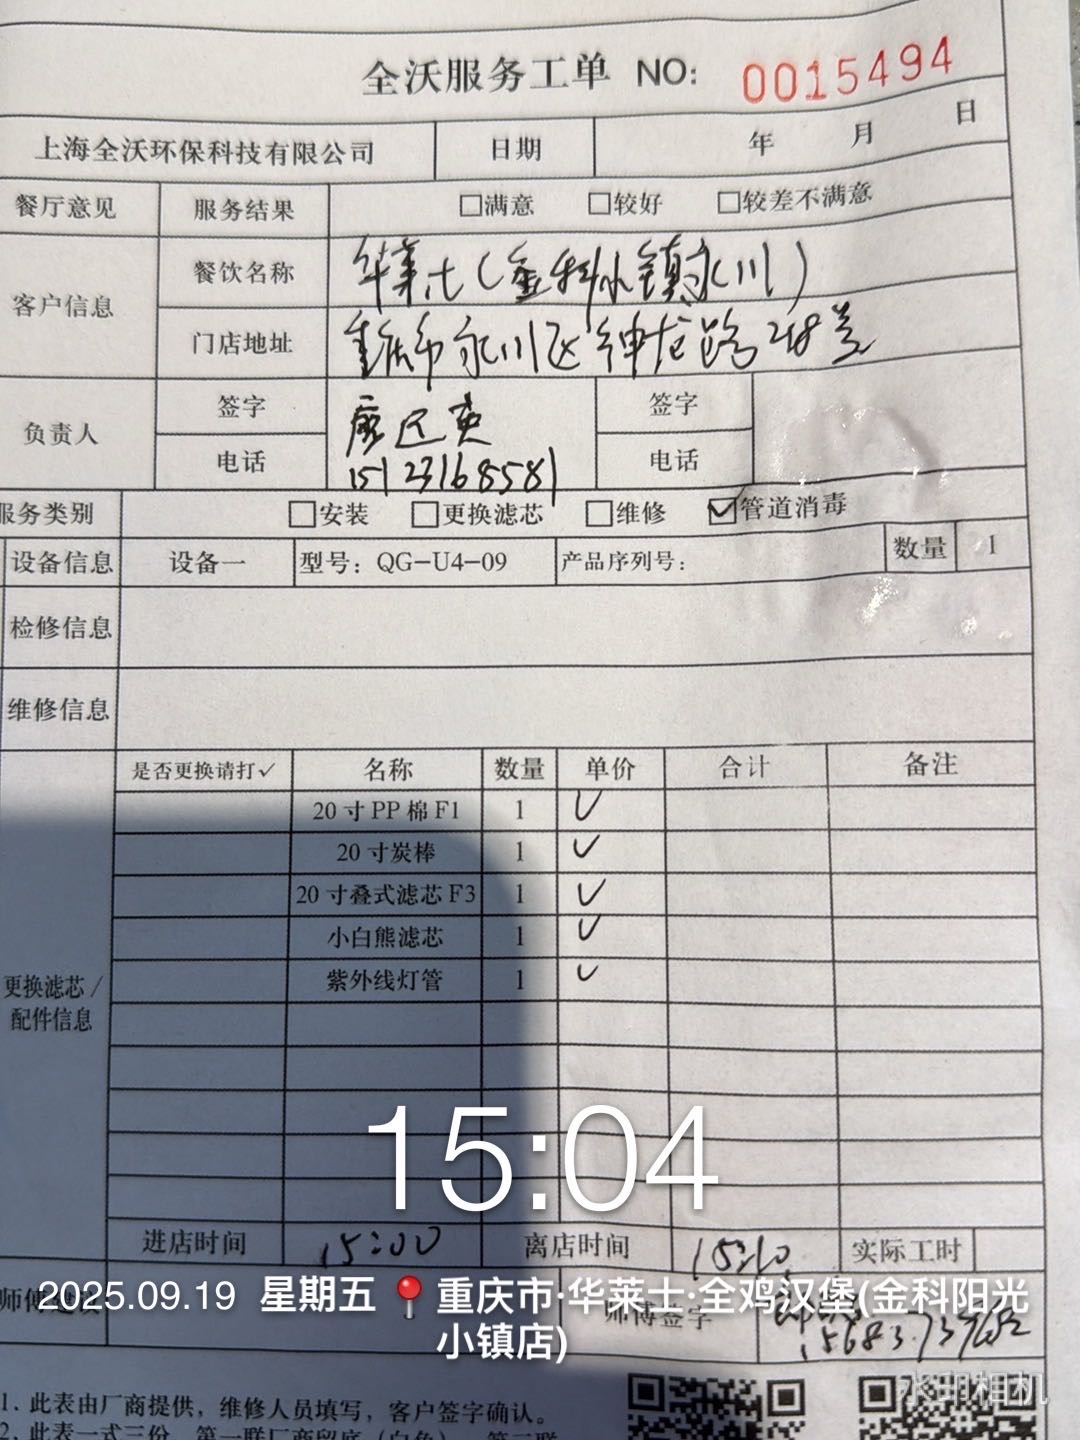 全沃服务工单 NO: 0015494
上海全沃环保科技有限公司 日期 年 月 日
餐厅意见 服务结果 □满意 □较好 □较差不满意
客户信息 餐饮名称 华莱士(金科小镇永川)
门店地址 重庆市永川区神龙路248号
负责人 签字 签字
电话 15123168581 电话
服务类别 □安装 □更换滤芯 □维修 ☑管道消毒
设备信息 设备一 型号：QG-U4-09 产品序列号： 数量 1
检修信息
维修信息
是否更换请打✓ 名称 数量 单价 合计 备注
20寸PP棉F1 1 ✓
20寸炭棒 1 ✓
20寸叠式滤芯F3 1 ✓
小白熊滤芯 1 ✓
紫外线灯管 1 ✓
更换滤芯/
配件信息
15:04
进店时间 15:00 离店时间 15:10 实际工时
师傅签字
2025.09.19 星期五 重庆市·华莱士·全鸡汉堡(金科阳光
小镇店)
1. 此表由厂商提供，维修人员填写，客户签字确认。
2. 此表一式三份，第一联厂商留底（白色），第二联
水印相机